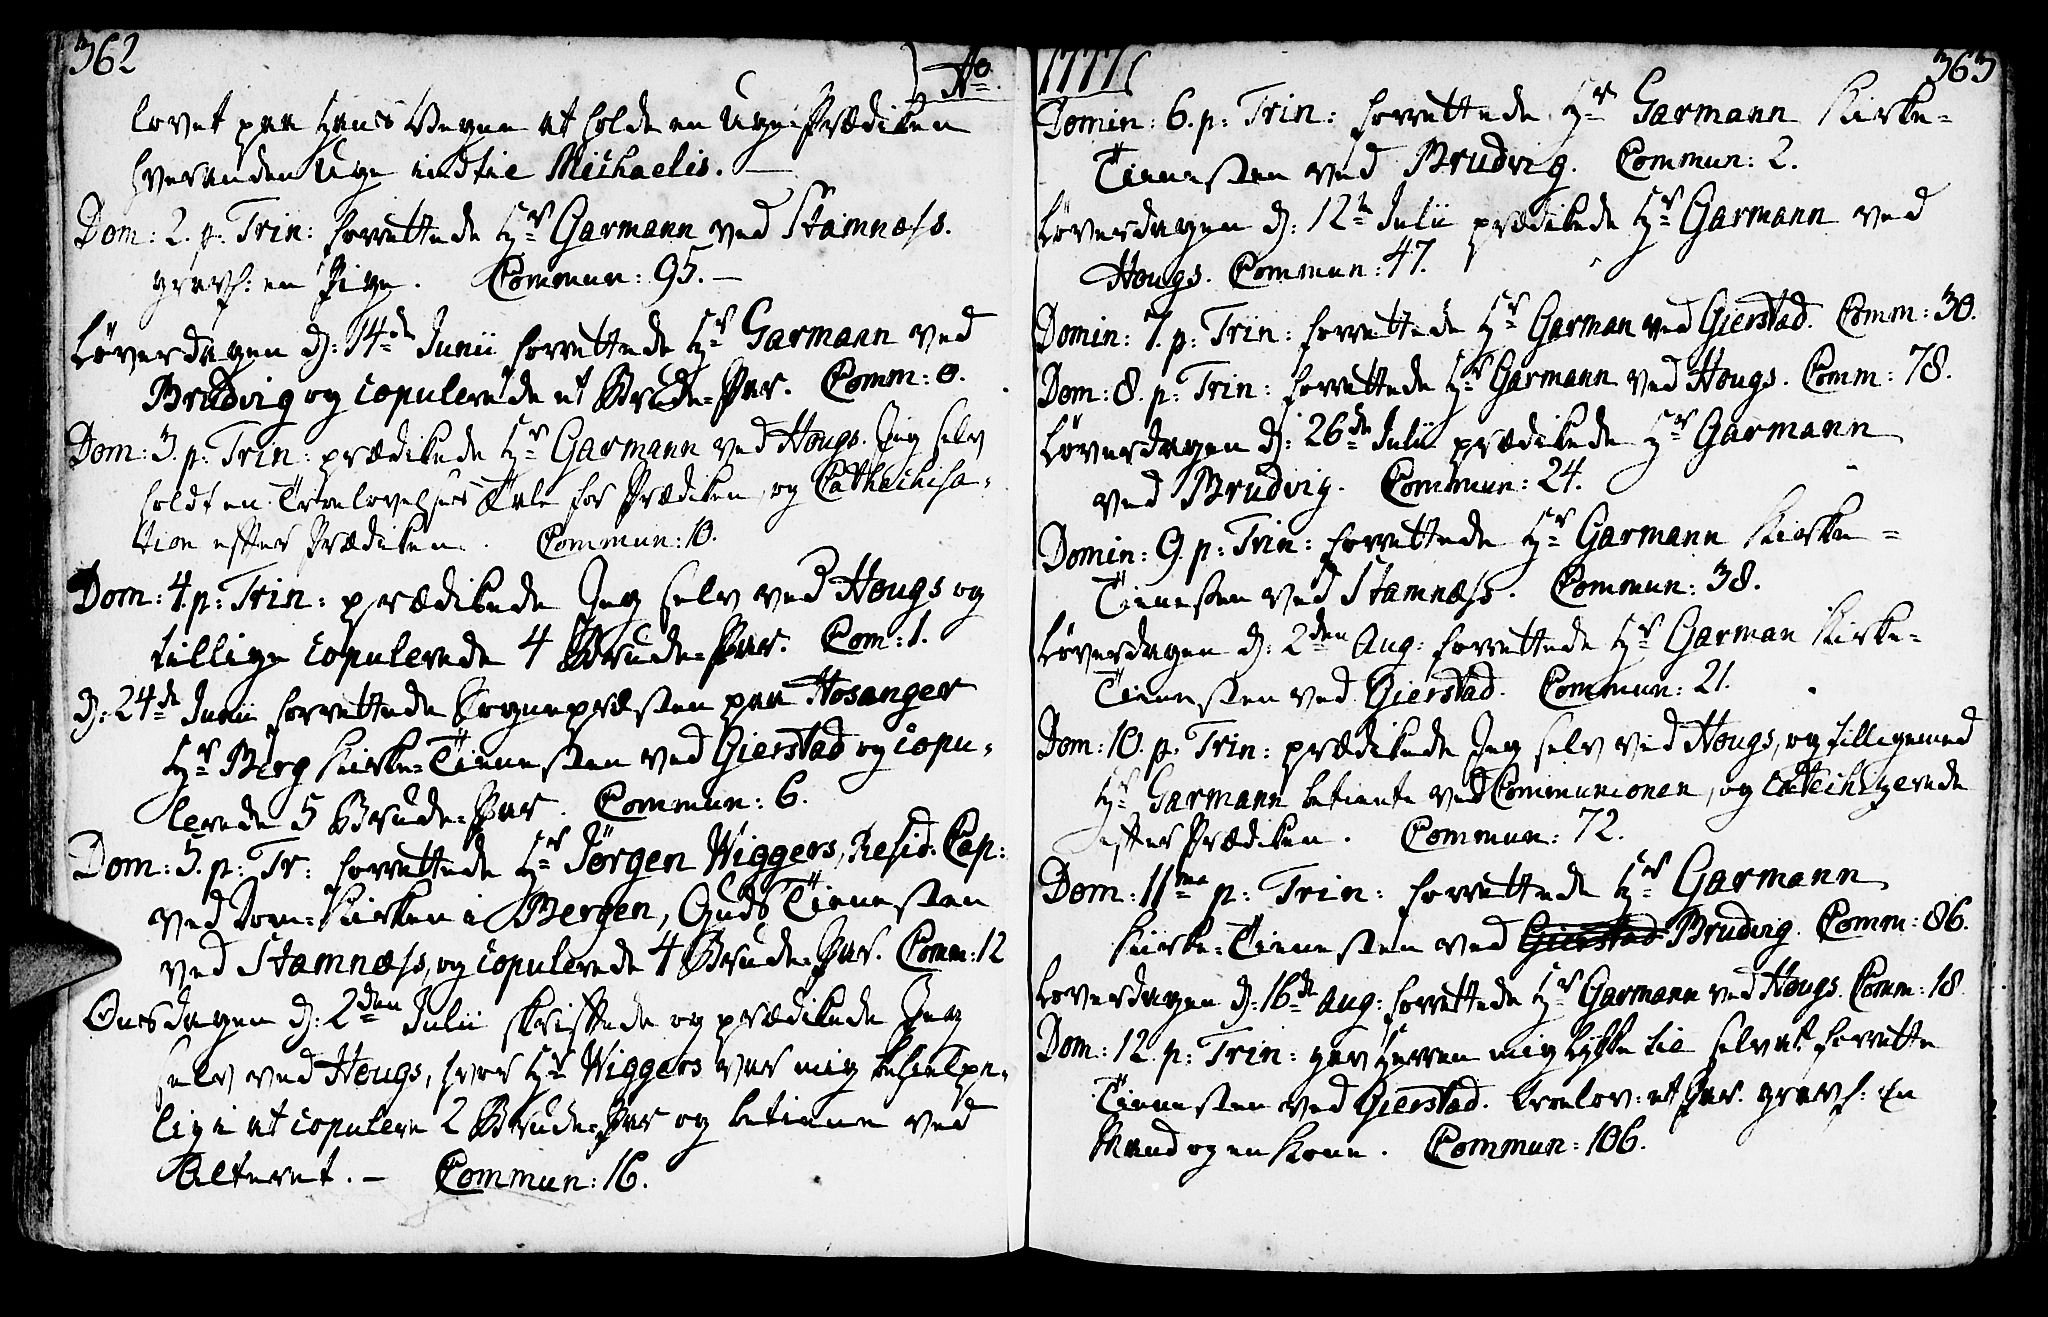 362
Ao.
lovet paa Hans Vegne at holde en Uge-Prædiken
hveranden Uge indtil Michaelis. —
Dom: 2. p: Trin: forrettede Hr Garmann ved Stamnæss.
grafs: en Pige. Commun: 95. —
Løverdagen d: 14de Junii forrettede Hr Garmann ved
Brudvig og copulerede et Brude-Par. Comm: 0.
Dom: 3. p: Trin: prædikede Hr Garmann ved Hougs. Jeg selv
holdt en Troelovelses Tale for Prædiken, og Cathechisa-
tion efter Prædiken. Commun: 10.
Dom: 4. p: Trin: prædikede Jeg selv ved Hougs og
tillige copulerede 4 Brude-Par. Com: 1.
d: 24de Junii forrettede Sognepræsten paa Hosanger
Hr Berg Kirke-Tienesten ved Gierstad og copu-
lerede 5 Brude-Par. Commun: 6.
Dom: 5. p: Tr: forrettede Hr Jørgen Wiggers, Resid: Cap:
ved Dom-Kirken i Bergen, Guds Tienesten
ved Stamnæss, og copulerede 4 Brude-Par. Comm: 12
Onsdagen d: 2den Julii skriftede og prædikede Jeg
selv ved Hougs, hvor Hr Wiggers var mig behielpe-
lig i at copulere 2 Brude-Par og betiene ved
Alteret. — Commun: 16.
1777
363
Domin: 6. p: Trin: forrettede Hr Garmann Kirke-
Tienesten ved Brudvig. Commun: 2.
Løverdagen d: 12te Julii prædikede Hr Garmann ved
Hougs. Commun: 47.
Domin: 7. p: Trin: forrettede Hr Garman ved Gierstad. Comm: 30.
Dom: 8. p: Trin: forrettede Hr Garmann ved Hougs. Comm: 78.
Løverdagen d: 26de Julii prædikede Hr Garmann
ved Brudvig. Commun: 24.
Domin: 9. p: Trin: forrettede Hr Garmann Kirke-
Tienesten ved Stamnæss. Commun: 38.
Løverdagen d: 2den Aug: forrettede Hr Garman Kirke-
Tienesten ved Gierstad. Commun: 21.
Dom: 10. p: Trin: prædikede Jeg selv ved Hougs, og tilligemed
Hr Garmann betiente ved Communionen, og catechizerede
efter Prædiken. Commun: 72.
Dom: 11ma p: Trin: forrettede Hr Garmann
Kirke-Tienesten ved Gierstad Brudvig. Comm: 86.
Løverdagen d: 16de Aug: forrettede Hr Garmann ved Hougs. Comm: 18
Dom: 12. p: Trin: gav Herren mig Lykke til selv at forrette
Tienesten ved Gierstad. troelov: et Par. grafs: En
Mand og en Kone. Commun: 106.